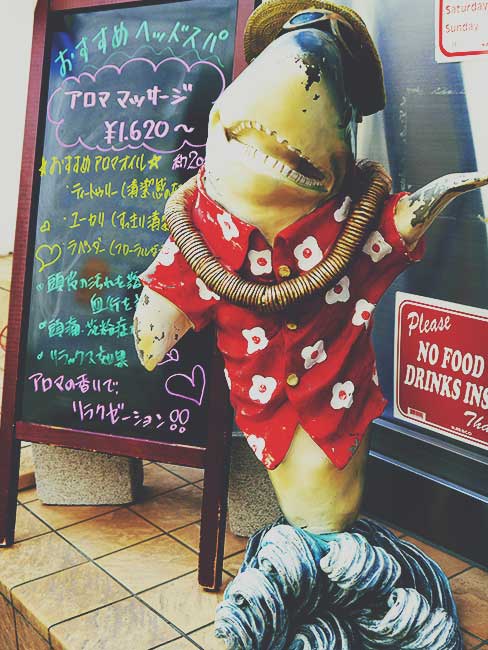 おすすめヘッドスパ
アロママッサージ
¥1.620～
★おすすめアロマオイル★ 約20
・ティートゥリー(清潔感の
・ユーカリ(すっきり清涼
・ラベンダー(フローラル
・頭皮の汚れを
血行を
・頭痛・
・リラックス効果
アロマの香いで、
リラクゼーション!!
Saturday
Sunday
Please
NO FOOD
DRINKS INS
Tha